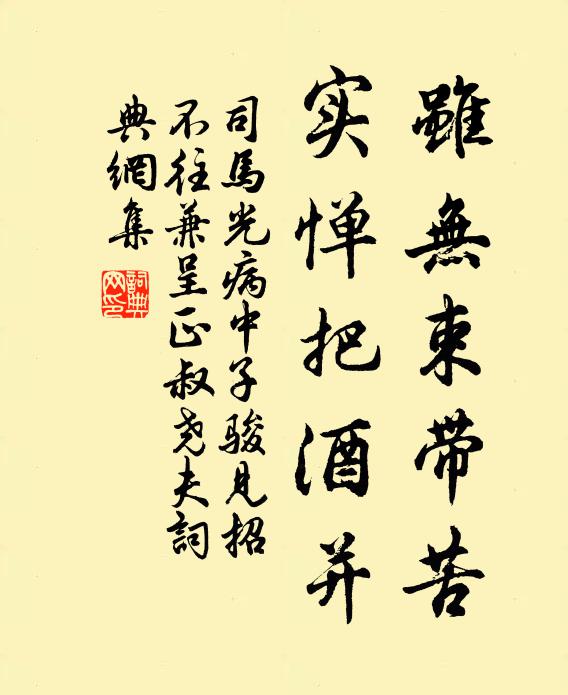 雖無束带苦
实惮把酒并
司馬光病中子骏見招
不往兼呈正叔尧夫詞
典網集
詞典网印